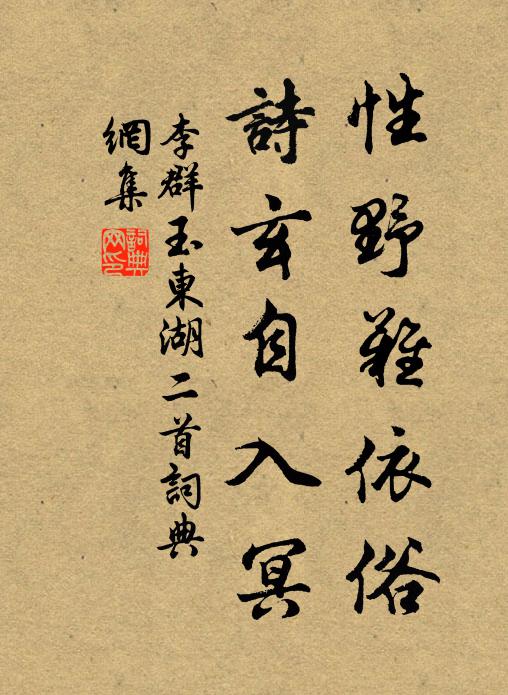 性野難依俗
詩玄自入冥
李群玉東湖二首詞典
網集
詞典網印